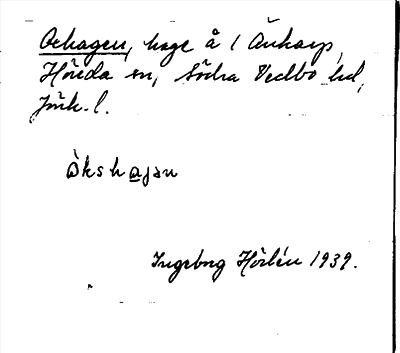 Oxhagen, hage å 1 Änkarp,
Höreda sn, Södra Vedbo hd,
Jönk. l.
òkshagən
Ingeborg Hörlén 1939.